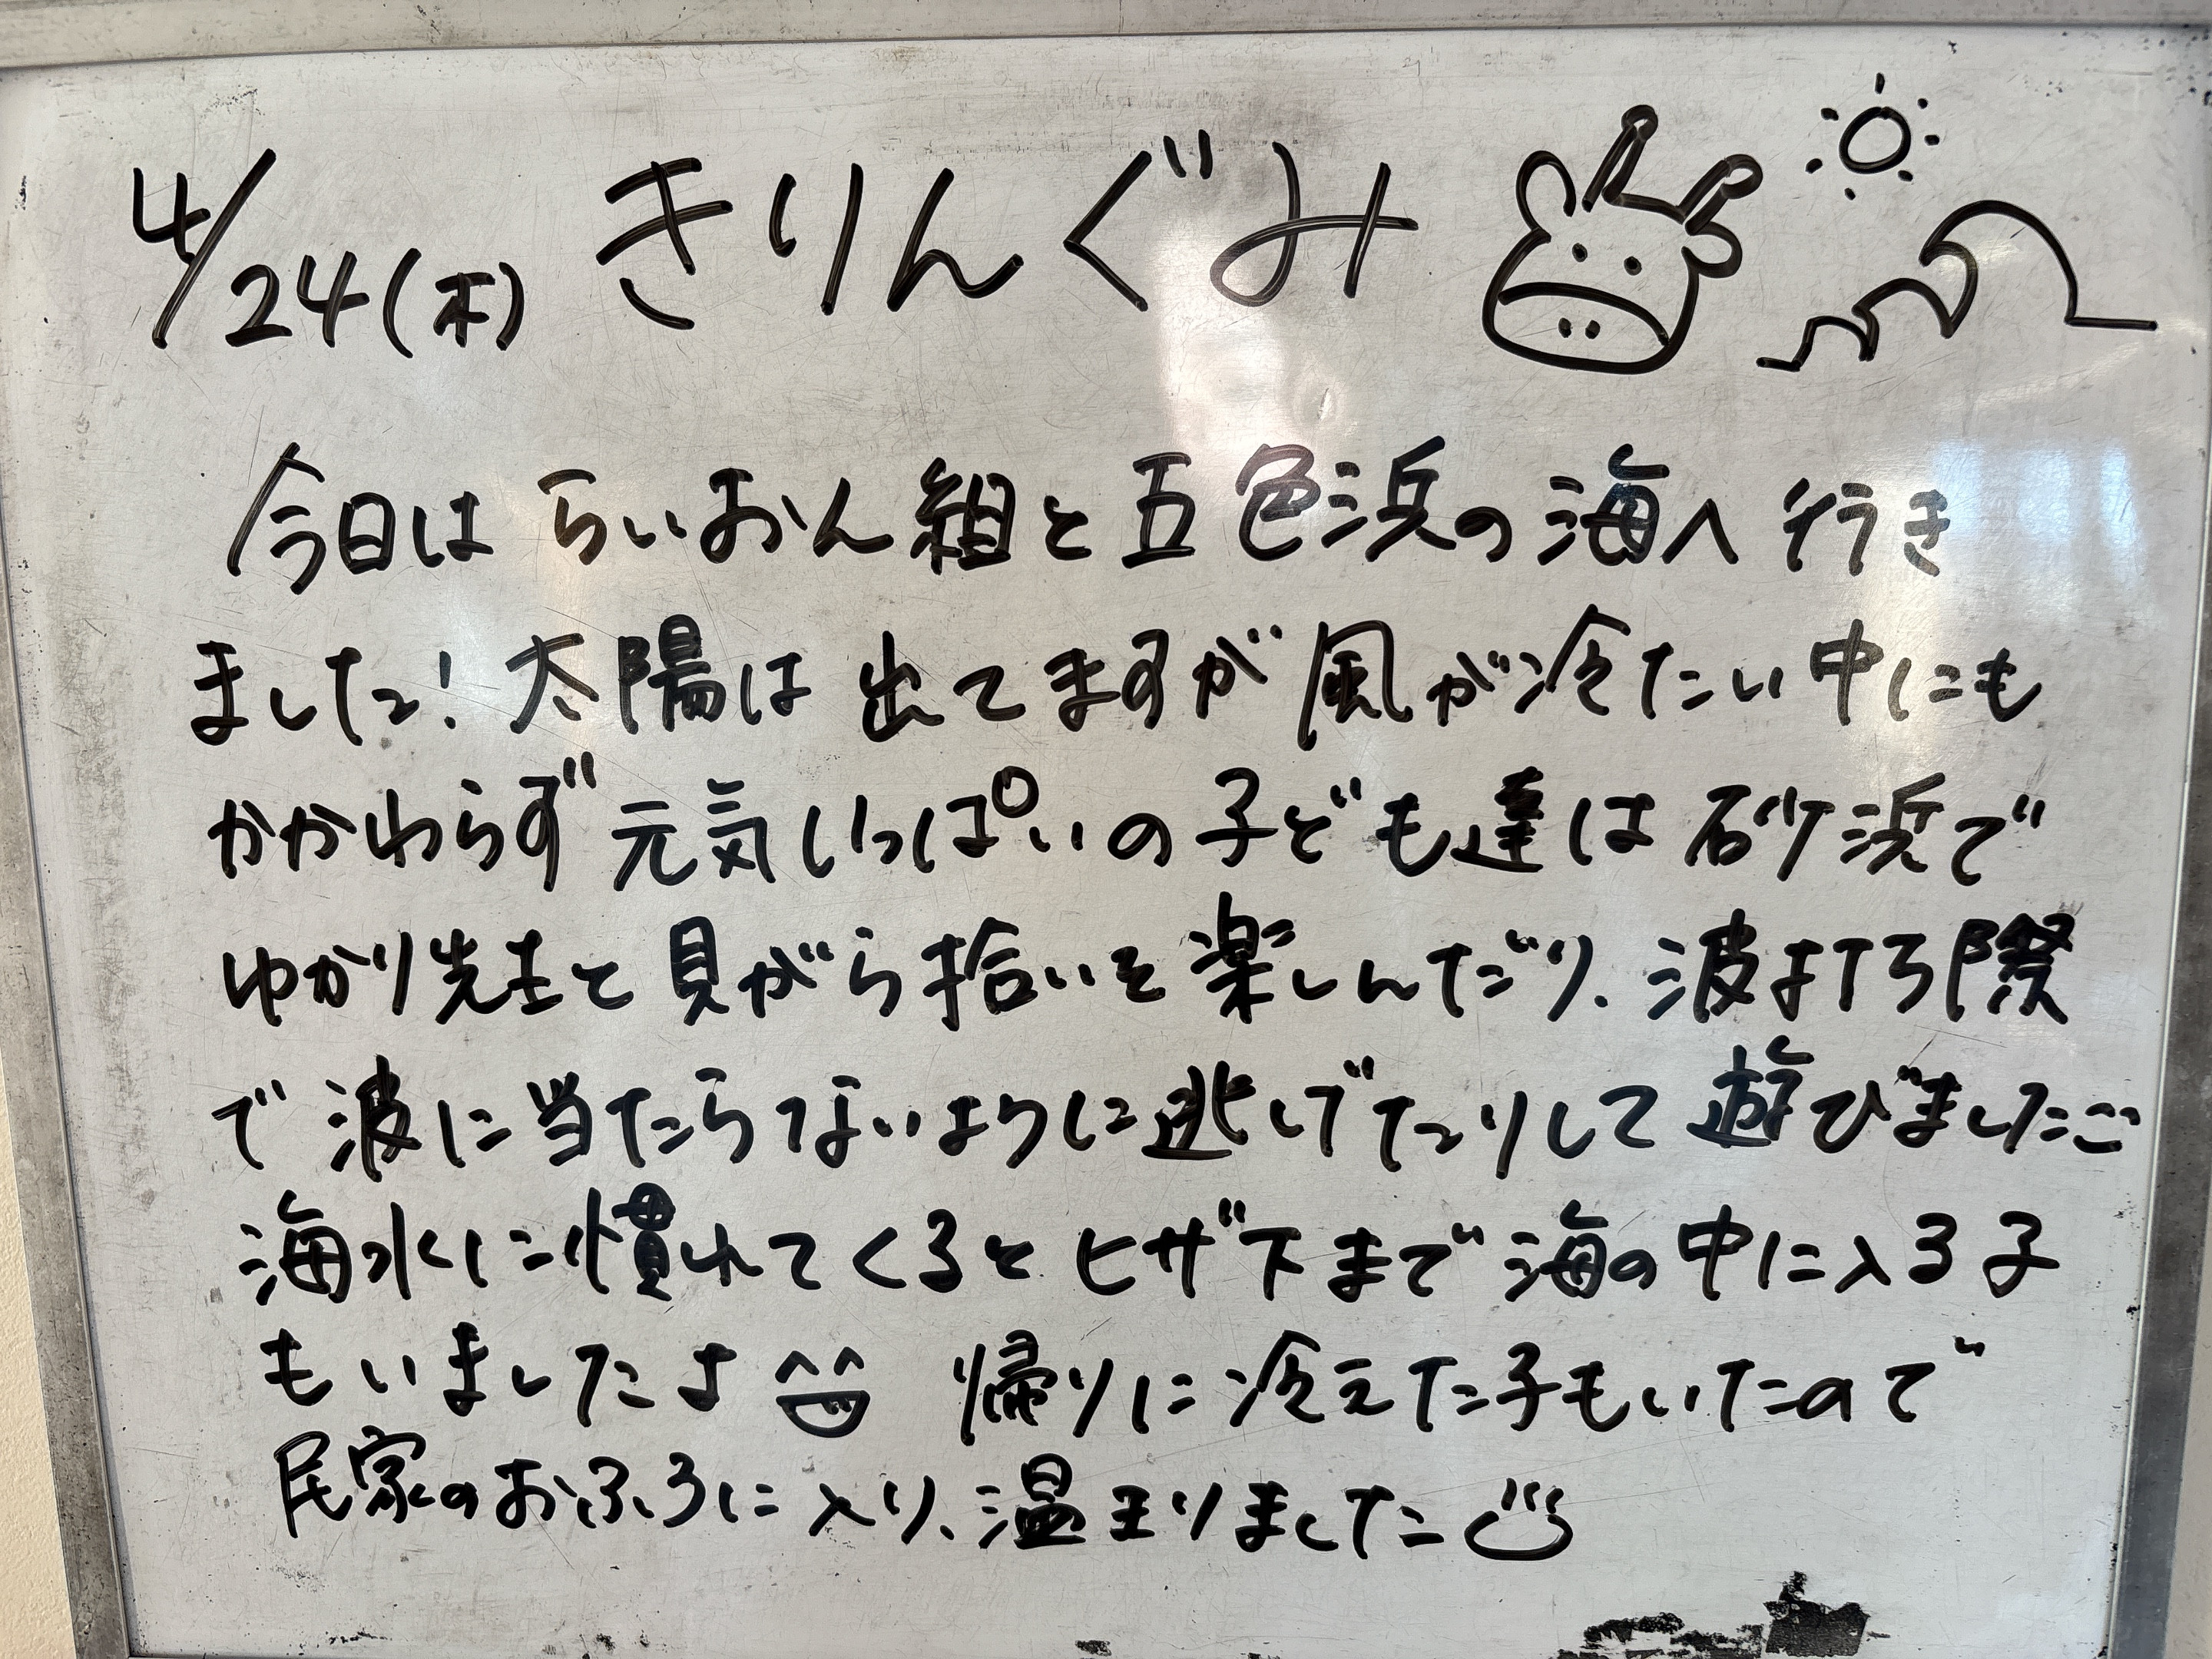 4/24(木) きりんぐみ
今日は らいおん組と五色浜の海へ行き
ました! 太陽は出てますが風が冷たい中にも
かかわらず元気いっぱいの子ども達は砂浜で
ゆかり先生と貝がら拾いを楽しんだり、波打ち際
で波に当たらないように逃げたりして遊びました。
海水に慣れてくるとヒザ下まで海の中に入る子
もいましたよ 帰りに冷えた子もいたので
民家のおふろに入り、温まりました